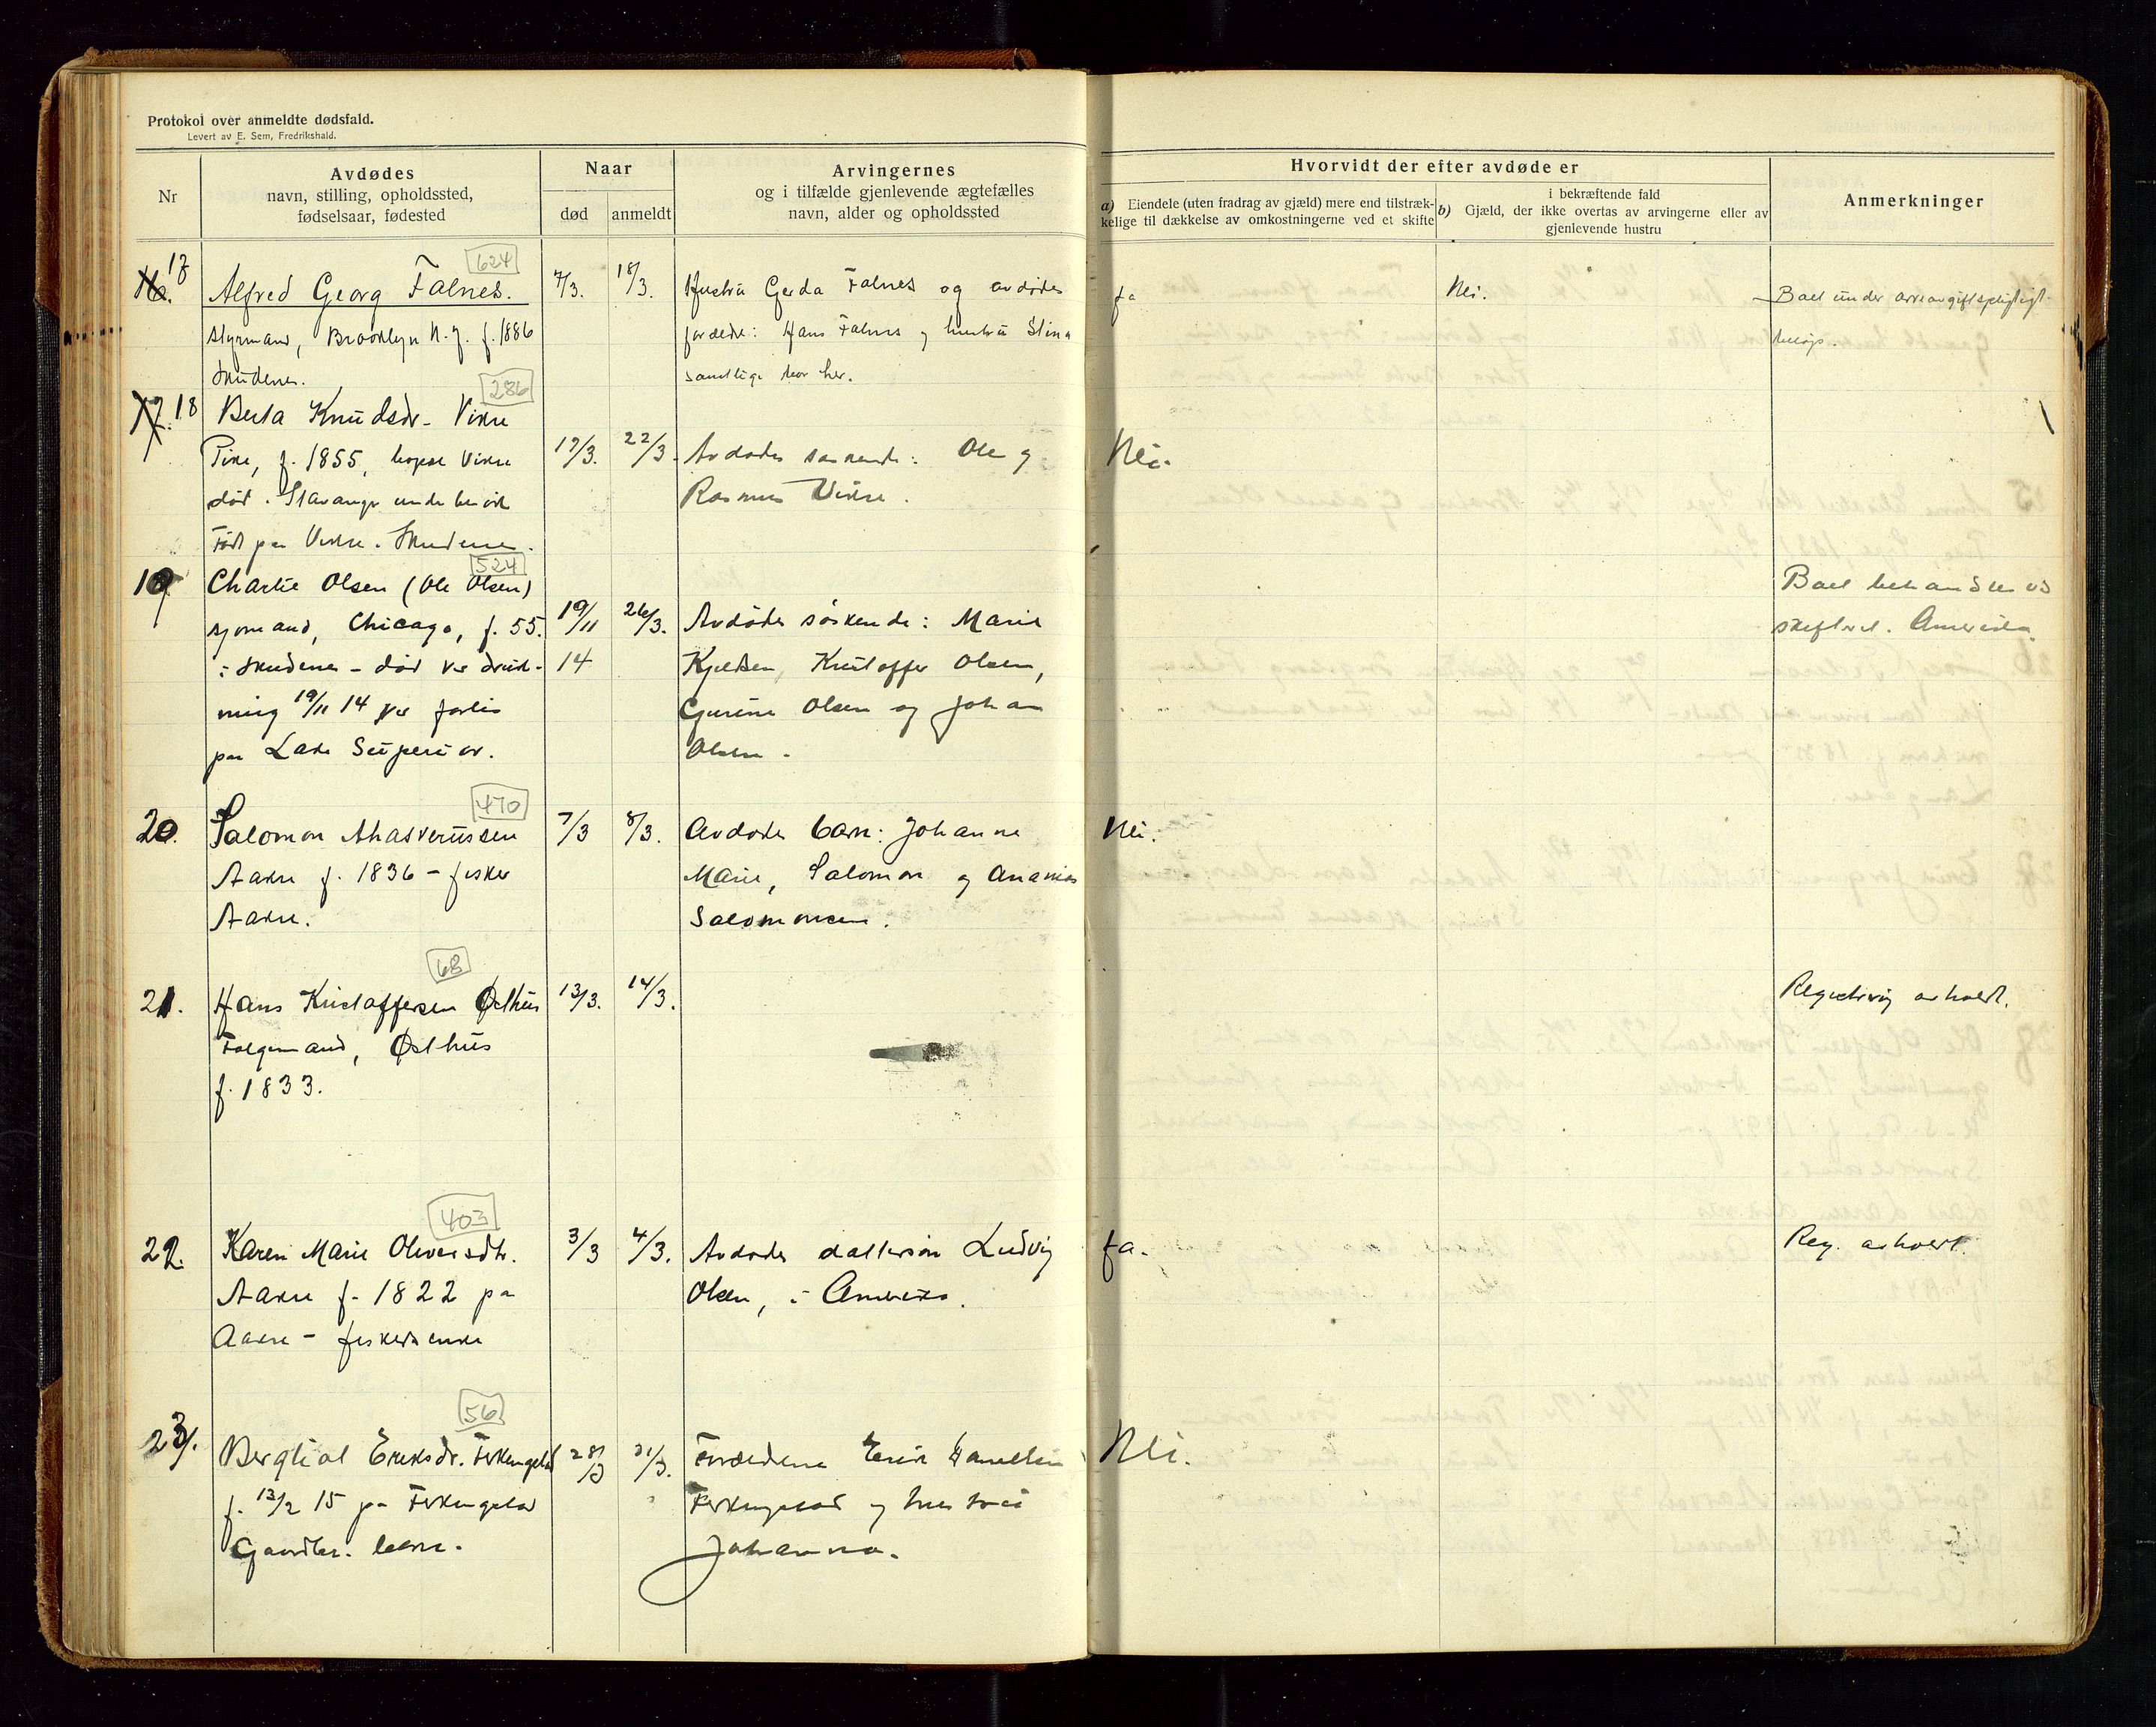 Protokol over anmeldte dødsfald.
Levert av E. Sem, Fredrikshald.
Nr
Avdødes
navn, stilling, opholdssted,
fødselsaar, fødested
Naar
død
anmeldt
Arvingernes
og i tilfælde gjenlevende ægtefælles
navn, alder og opholdssted
Hvorvidt der efter avdøde er
a) Eiendele (uten fradrag av gjæld) mere end tilstræk-
kelige til dækkelse av omkostningerne ved et skifte
b) i bekræftende fald
Gjæld, der ikke overtas av arvingerne eller av
gjenlevende hustru
Anmerkninger
16. 17
624
Alfred Georg Falnes.
styrmand, Brooklyn N.J. f. 1886
Skudenes.
7/3.
18/3.
Hustru Gerda Falnes og avdødes
forældre: Hans Falnes og hustru Stina
samtlige bor her.
Ja
Nei.
Boet under arveavgiftspligtigt
beløp.
17. 18
286
Berta Knudsdr. Vikre
Pike, f. 1855, bopæl Vikre
død i Stavanger under besøk
Født paa Vikre i Skudenes.
17/3.
22/3.
Avdødes søskende: Ole og
Rasmus Vikre.
Nei.
19
524
Charlie Olsen (Ole Olsen)
sjømand, Chicago, f. 55.
i Skudenes - død ved druk-
ning 19/11 14 ved forlis
paa Lake Superior.
19/11
14
26/3.
Avdødes søskende: Marie
Kjeldsen, Kristoffer Olsen,
Gurine Olsen og Johan
Olsen.
Boet behandles ved
skifteret i Amerika.
20.
470
Salomon Ahasverussen
Aakre f. 1836 - fisker
Aakre.
7/3
8/3.
Avdødes barn: Johanne
Marie, Salomon og Ananias
Salomonsen.
Nei.
21.
68
Hans Kristoffersen Østhus
Folgemand, Østhus
f. 1833.
13/3.
14/3.
Registrering avholdt.
22.
403
Karen Marie Oliversdtr.
Aakre f. 1822 paa
Aakre - fiskerenke
3/3
4/3.
Avdødes dattersøn Ludvig
Olsen, i Amerika.
Ja.
Reg. avholdt.
23.
56
Bergliot Eriksdr. Ferkingstad
f. 13/2 15 paa Ferkingstad
Gaardbr. barn.
28/3
31/3.
Forældrene Erik Danielsen
Ferkingstad og hustru
Johanna.
Nei.